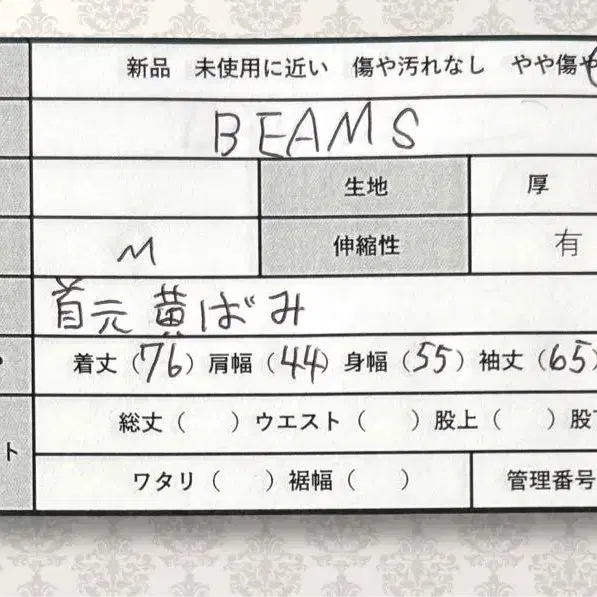 新品 未使用に近い 傷や汚れなし やや傷や
BEAMS
生地 厚
M 伸縮性 有
首元 黄ばみ
着丈（76）肩幅（44）身幅（55）袖丈（65）
総丈（　）ウエスト（　）股上（　）股下
ト
ワタリ（　）裾幅（　） 管理番号